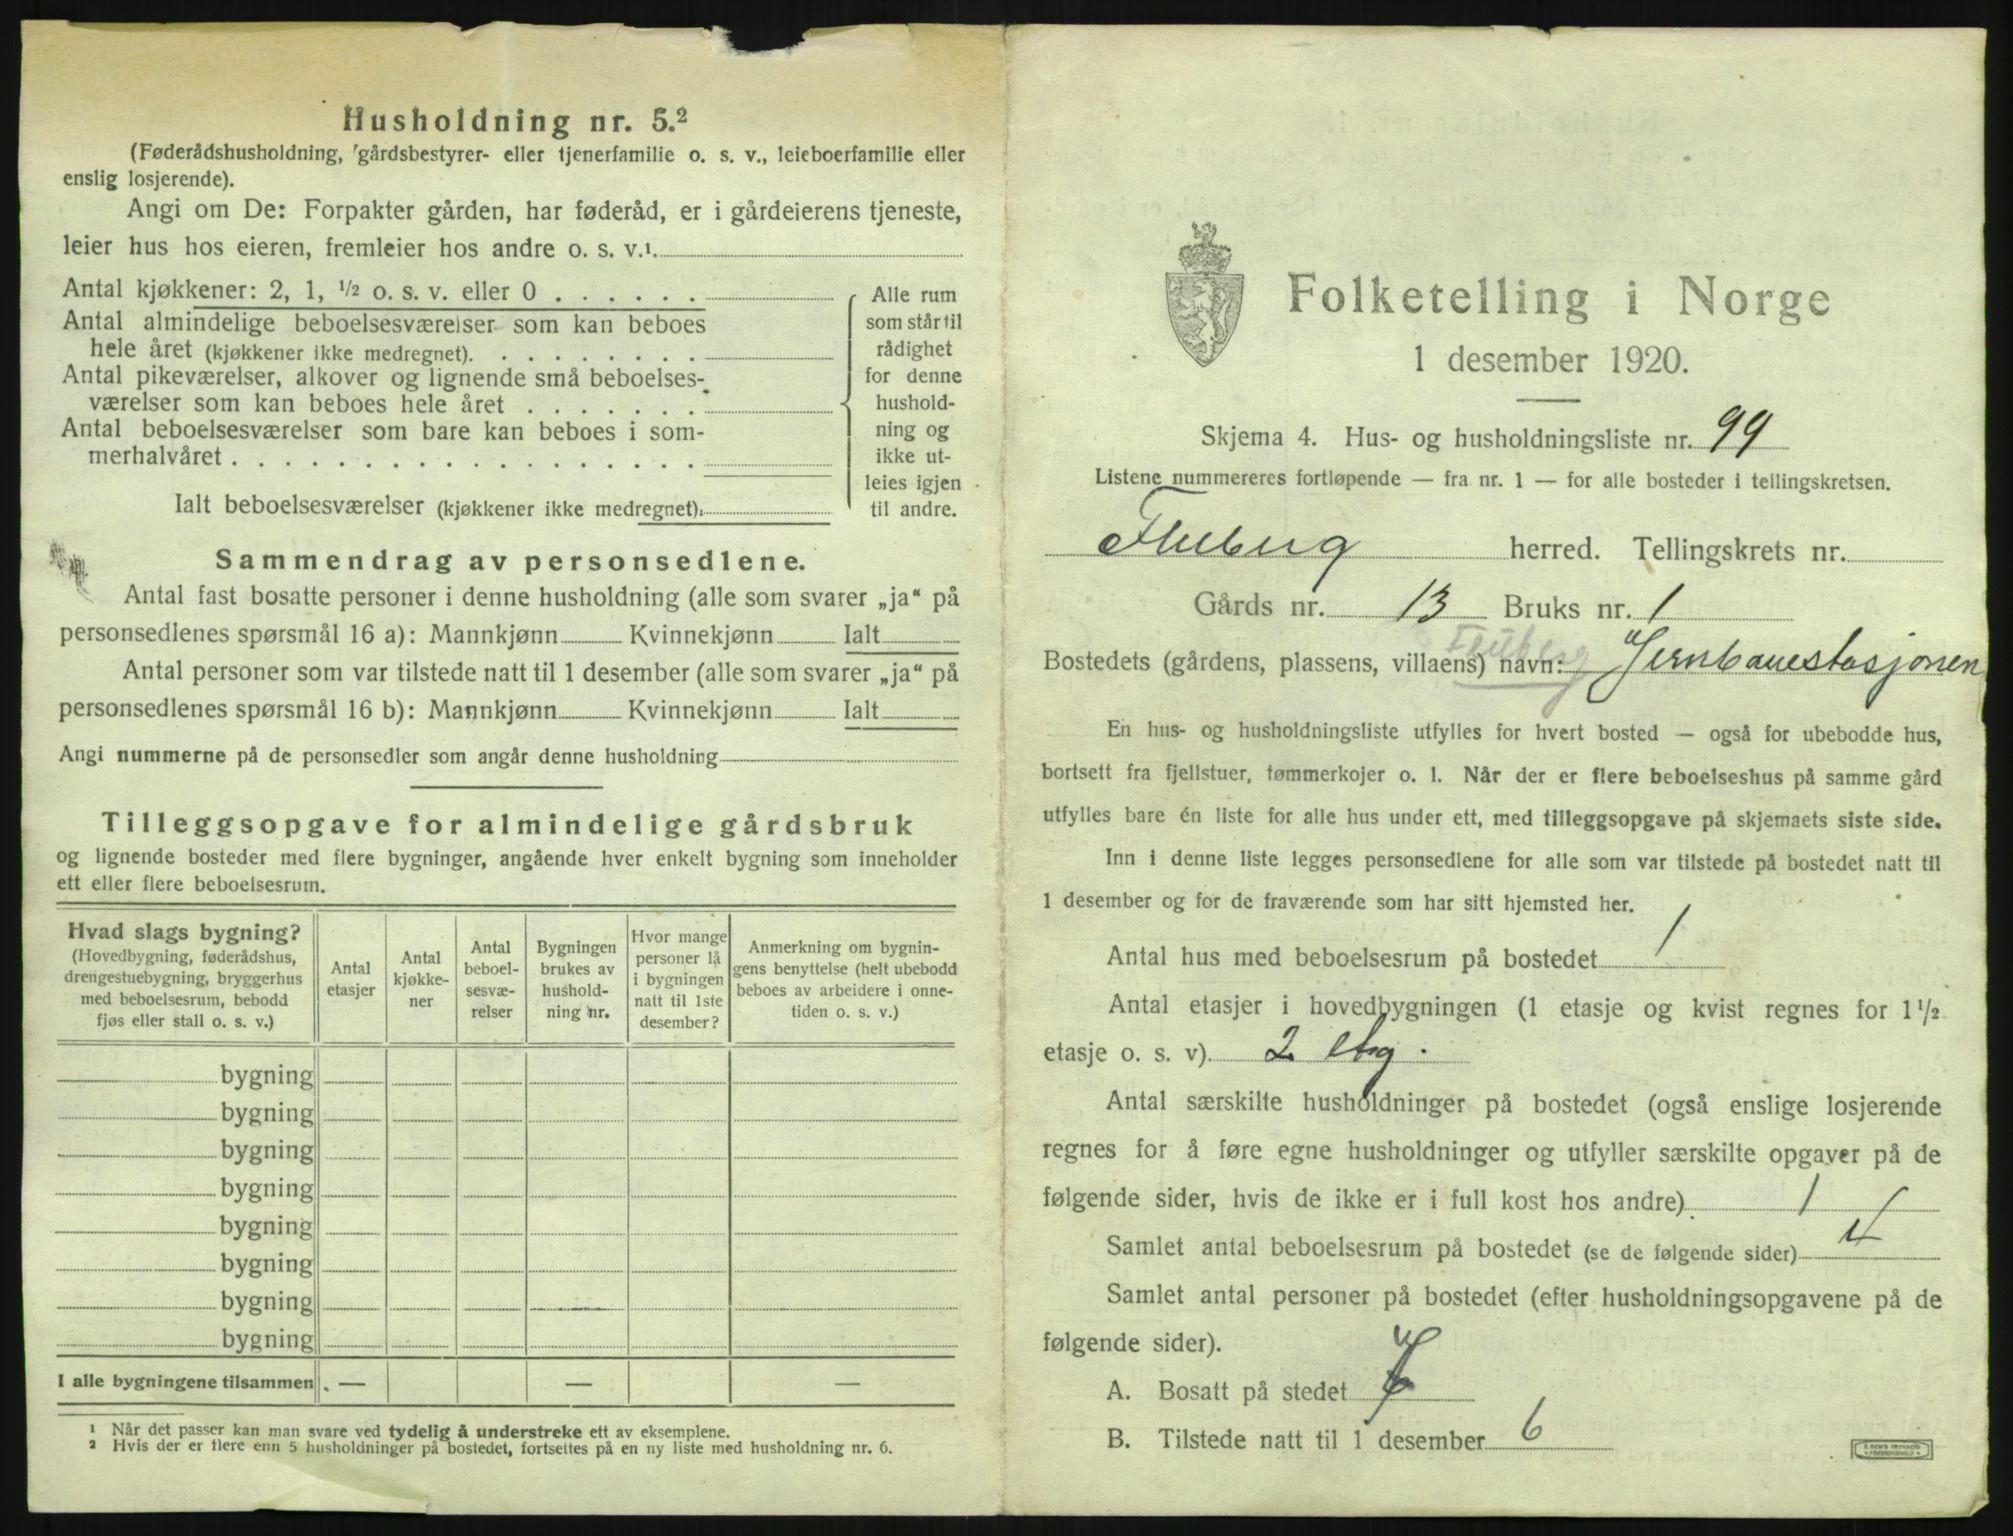 Husholdning nr. 5.²
(Føderådshusholdning, gårdsbestyrer- eller tjenerfamilie o. s. v., leieboerfamilie eller
enslig losjerende).
Angi om De: Forpakter gården, har føderåd, er i gårdeierens tjeneste,
leier hus hos eieren, fremleier hos andre o. s. v.¹
Antal kjøkkener: 2, 1, ½ o. s. v. eller 0 . . . . . .
Antal almindelige beboelsesværelser som kan beboes
hele året (kjøkkener ikke medregnet). . . . . . . . .
Antal pikeværelser, alkover og lignende små beboelses-
værelser som kan beboes hele året . . . . . . .
Antal beboelsesværelser som bare kan beboes i som-
merhalvåret . . . . . . . . . . . . . . . . . .
Ialt beboelsesværelser (kjøkkener ikke medregnet).
Alle rum
som står til
rådighet
for denne
hushold-
ning og
ikke ut-
leies igjen
til andre.
Sammendrag av personsedlene.
Antal fast bosatte personer i denne husholdning (alle som svarer „ja“ på
personsedlenes spørsmål 16 a): Mannkjønn Kvinnekjønn Ialt
Antal personer som var tilstede natt til 1 desember (alle som svarer „ja“ på
personsedlenes spørsmål 16 b): Mannkjønn Kvinnekjønn Ialt
Angi nummerne på de personsedler som angår denne husholdning
Tilleggsopgave for almindelige gårdsbruk
og lignende bosteder med flere bygninger, angående hver enkelt bygning som inneholder
ett eller flere beboelsesrum.
Hvad slags bygning?
(Hovedbygning, føderådshus,
drengestuebygning, bryggerhus
med beboelsesrum, bebodd
fjøs eller stall o. s. v.)
Antal
etasjer
Antal
kjøkke-
ner
Antal
beboel-
sesvæ-
relser
Bygningen
brukes av
hushold-
ning nr.
Hvor mange
personer lå
i bygningen
natt til 1ste
desember?
Anmerkning om bygnin-
gens benyttelse (helt ubebodd
beboes av arbeidere i onne-
tiden o. s. v.)
bygning
bygning
bygning
bygning
bygning
bygning
bygning
bygning
I alle bygningene tilsammen . — — —
¹ Når det passer kan man svare ved tydelig å understreke ett av eksemplene.
² Hvis der er flere enn 5 husholdninger på bostedet, fortsettes på en ny liste med husholdning nr. 6.
Folketelling i Norge
1 desember 1920.
Skjema 4. Hus- og husholdningsliste nr. 99
Listene nummereres fortløpende — fra nr. 1 — for alle bosteder i tellingskretsen.
Fluberg herred. Tellingskrets nr.
Gårds nr. 13 Bruks nr. 1
Fluberg
Bostedets (gårdens, plassens, villaens) navn: Jernbanestasjonen
En hus- og husholdningsliste utfylles for hvert bosted — også for ubebodde hus,
bortsett fra fjellstuer, tømmerkojer o. l. Når der er flere beboelseshus på samme gård
utfylles bare én liste for alle hus under ett, med tilleggsopgave på skjemaets siste side.
Inn i denne liste legges personsedlene for alle som var tilstede på bostedet natt til
1 desember og for de fraværende som har sitt hjemsted her.
Antal hus med beboelsesrum på bostedet 1
Antal etasjer i hovedbygningen (1 etasje og kvist regnes for 1½
etasje o. s. v). 2 etg.
Antal særskilte husholdninger på bostedet (også enslige losjerende
regnes for å føre egne husholdninger og utfyller særskilte opgaver på de
følgende sider, hvis de ikke er i full kost hos andre). 1
Samlet antal beboelsesrum på bostedet (se de følgende sider) 4
Samlet antal personer på bostedet (efter husholdningsopgavene på de
følgende sider).
A. Bosatt på stedet
B. Tilstede natt til 1 desember 6